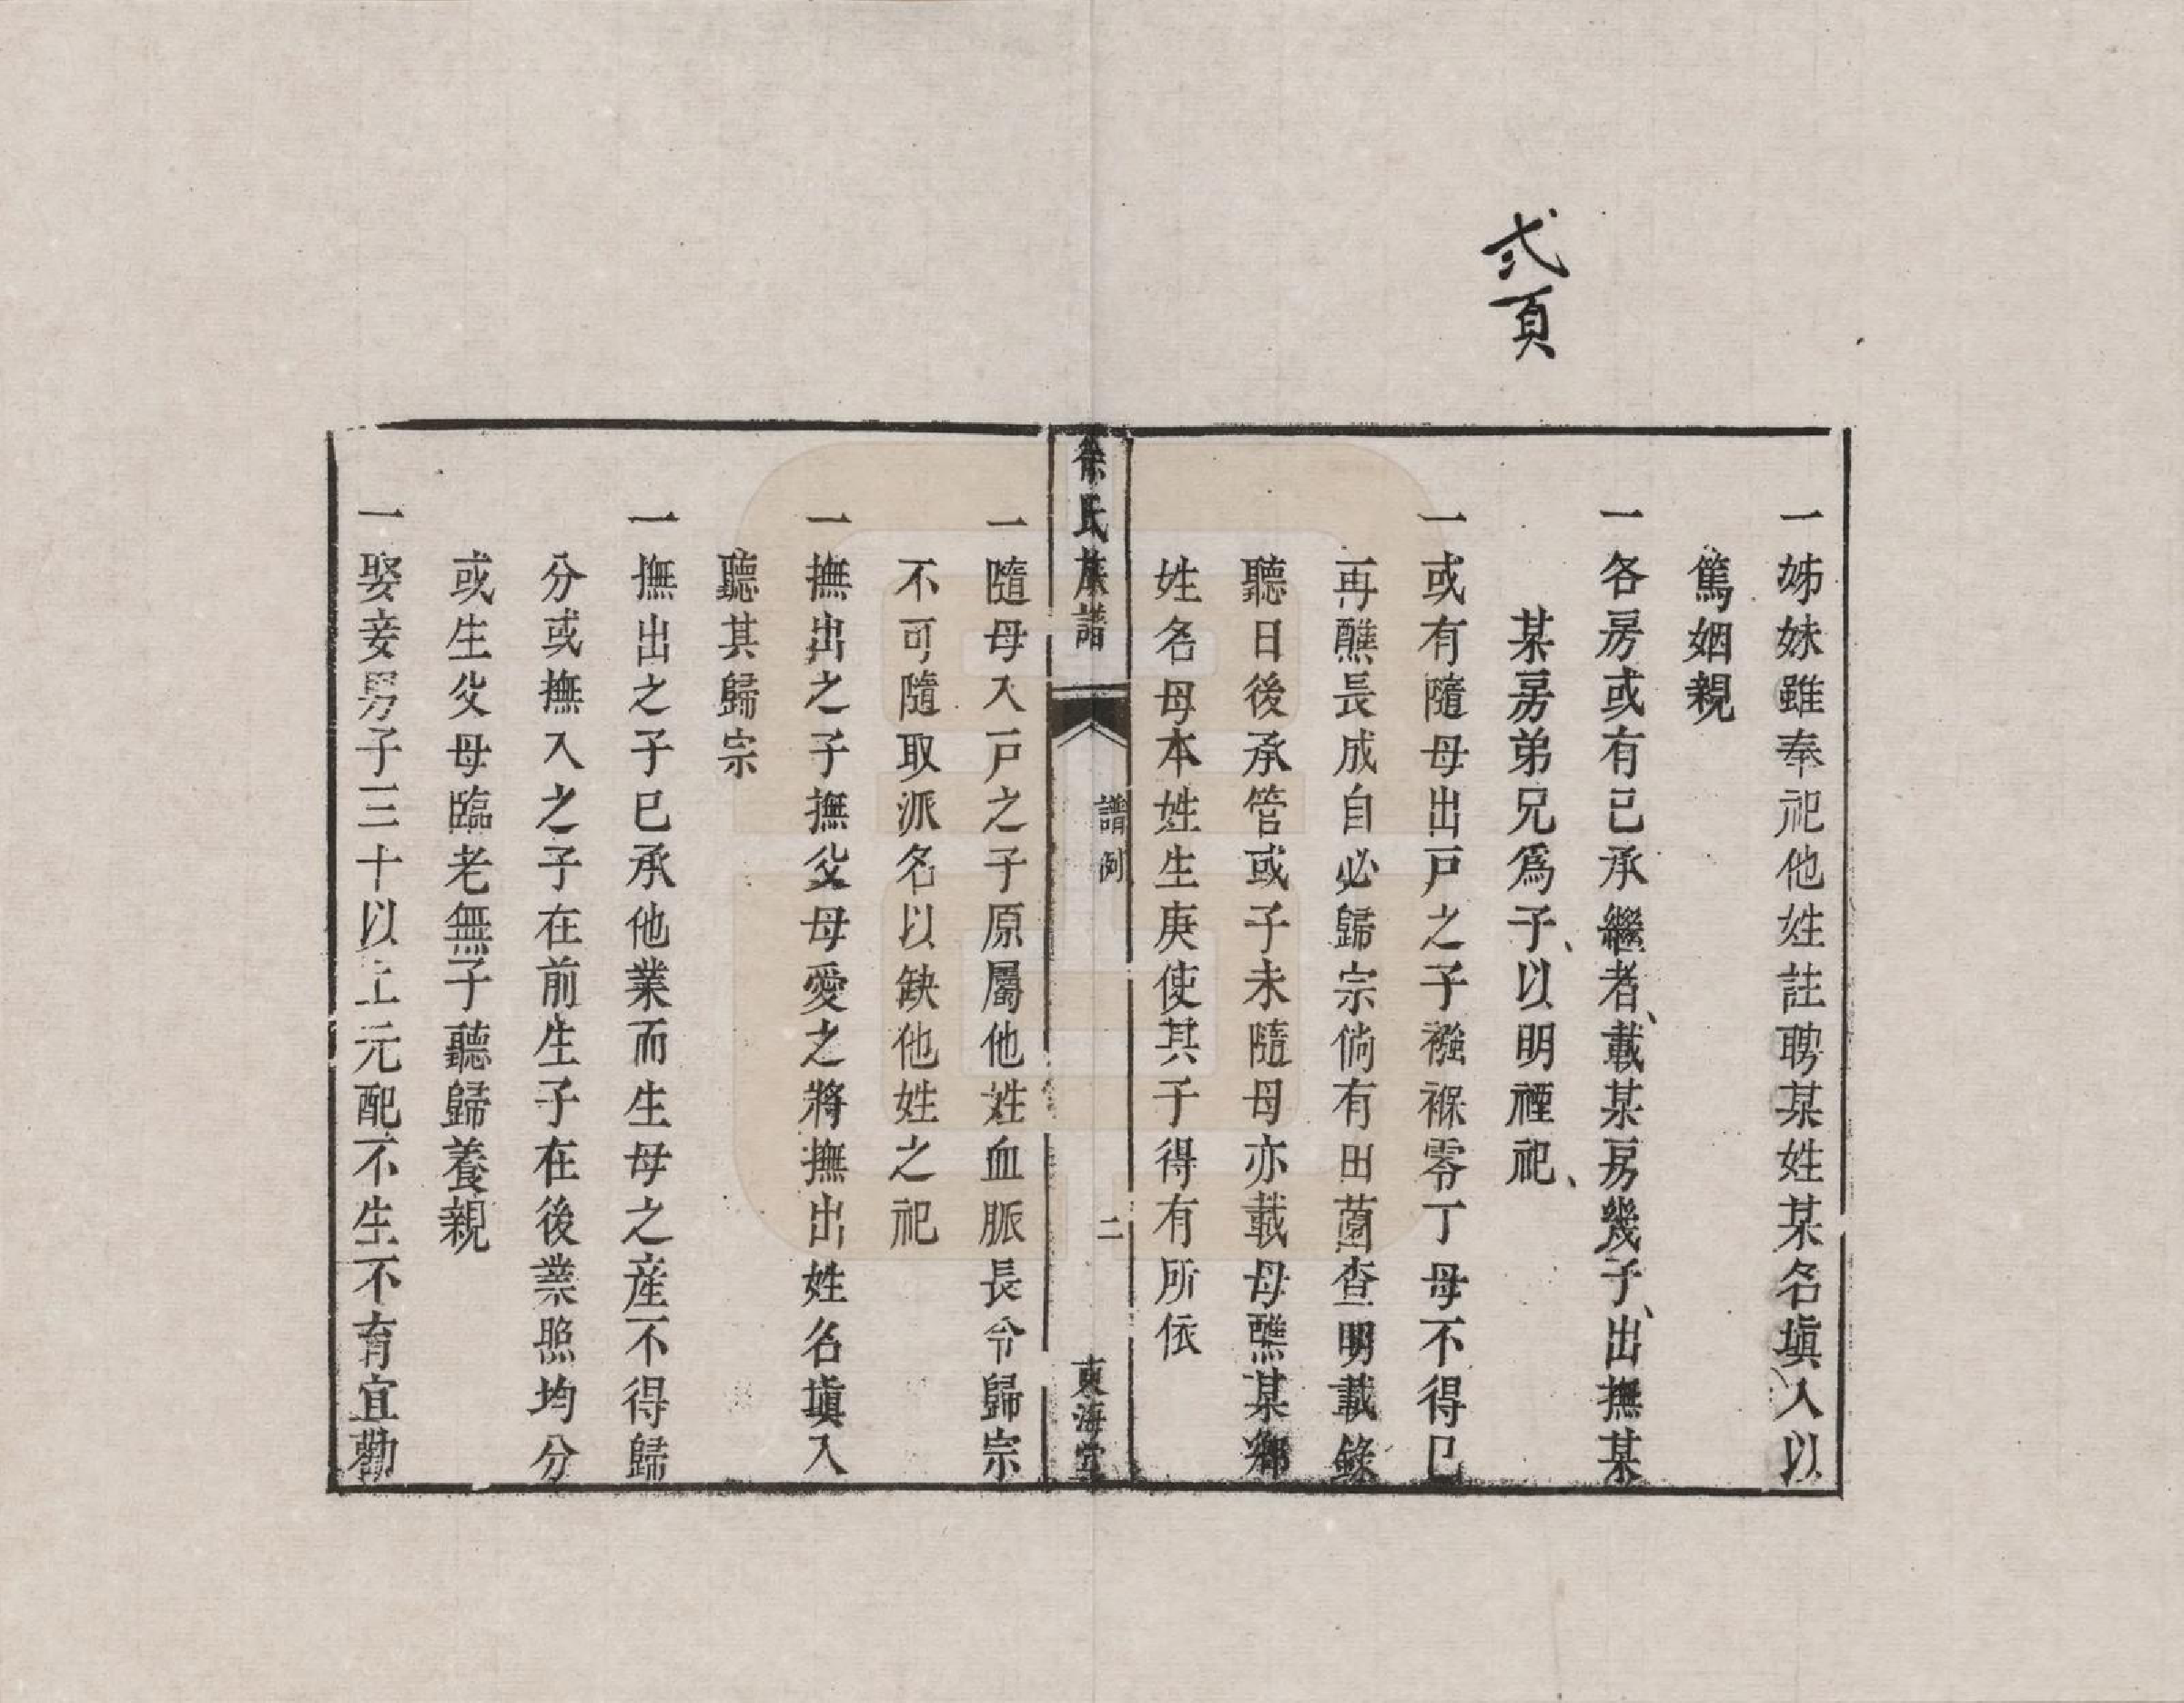 弍頁
一姊妹雖奉祀他姓註聘某姓某名塡入以
篤姻親
一各房或有已承繼者載某房幾子出撫某
某房弟兄爲子以明禋祀
一或有隨母出戸之子襁褓零丁母不得已
再醮長成自必歸宗倘有田薗查明載錄
聽日後承管或子未隨母亦載母醮某鄉
姓名母本姓生庚使其子得有所依
徐氏族譜
譜例
二
東海堂
一隨母入戸之子原屬他姓血脈長令歸宗
不可隨取派名以缺他姓之祀
一撫出之子撫父母愛之將撫出姓名塡入
聽其歸宗
一撫出之子已承他業而生母之産不得歸
分或撫入之子在前生子在後業照均分
或生父母臨老無子聽歸養親
一娶妾男子三十以上元配不生不育宜勸